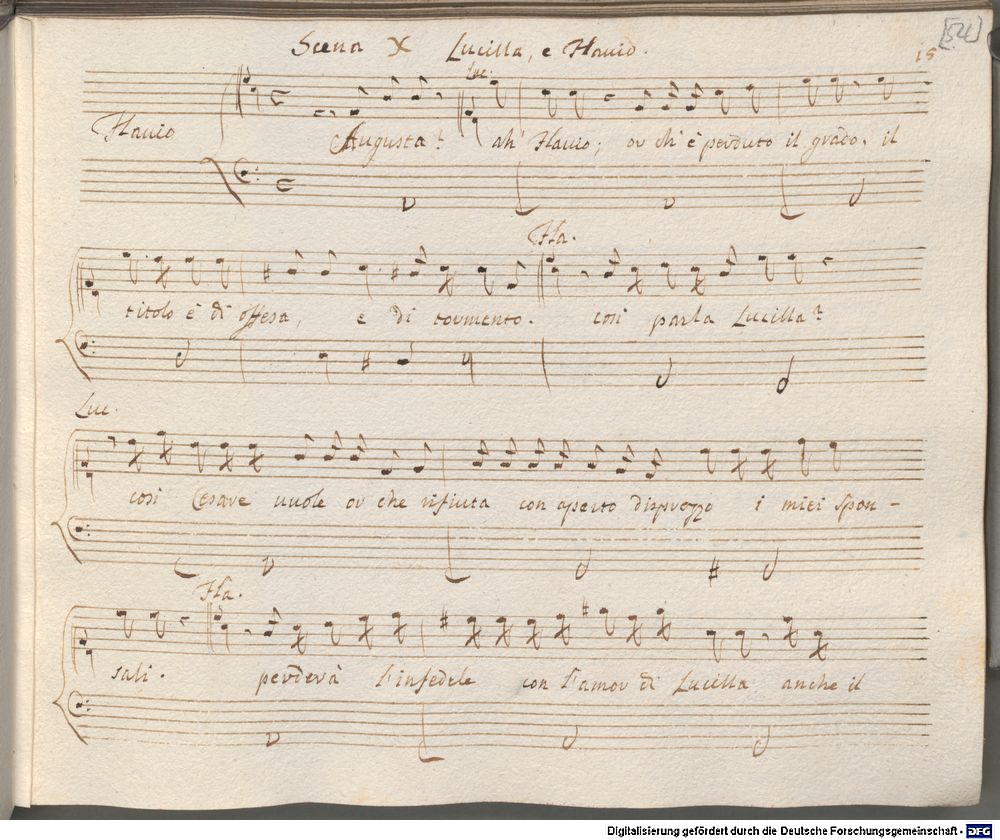 [54]
Scena X Lucilla, e Flavio.
15
Luc.
Flavio
Augusta? ah' Flavio; or ch' è perduto il grado, il
Fla.
titolo è di offesa, e di tormento. così parla Lucilla?
Luc.
così Cesare vuole or che rifiuta con aperto disprezzo i miei spon-
Fla.
sali. perderà l'infedele con l'amor di Lucilla anche il
Digitalisierung gefördert durch die Deutsche Forschungsgemeinschaft - DFG